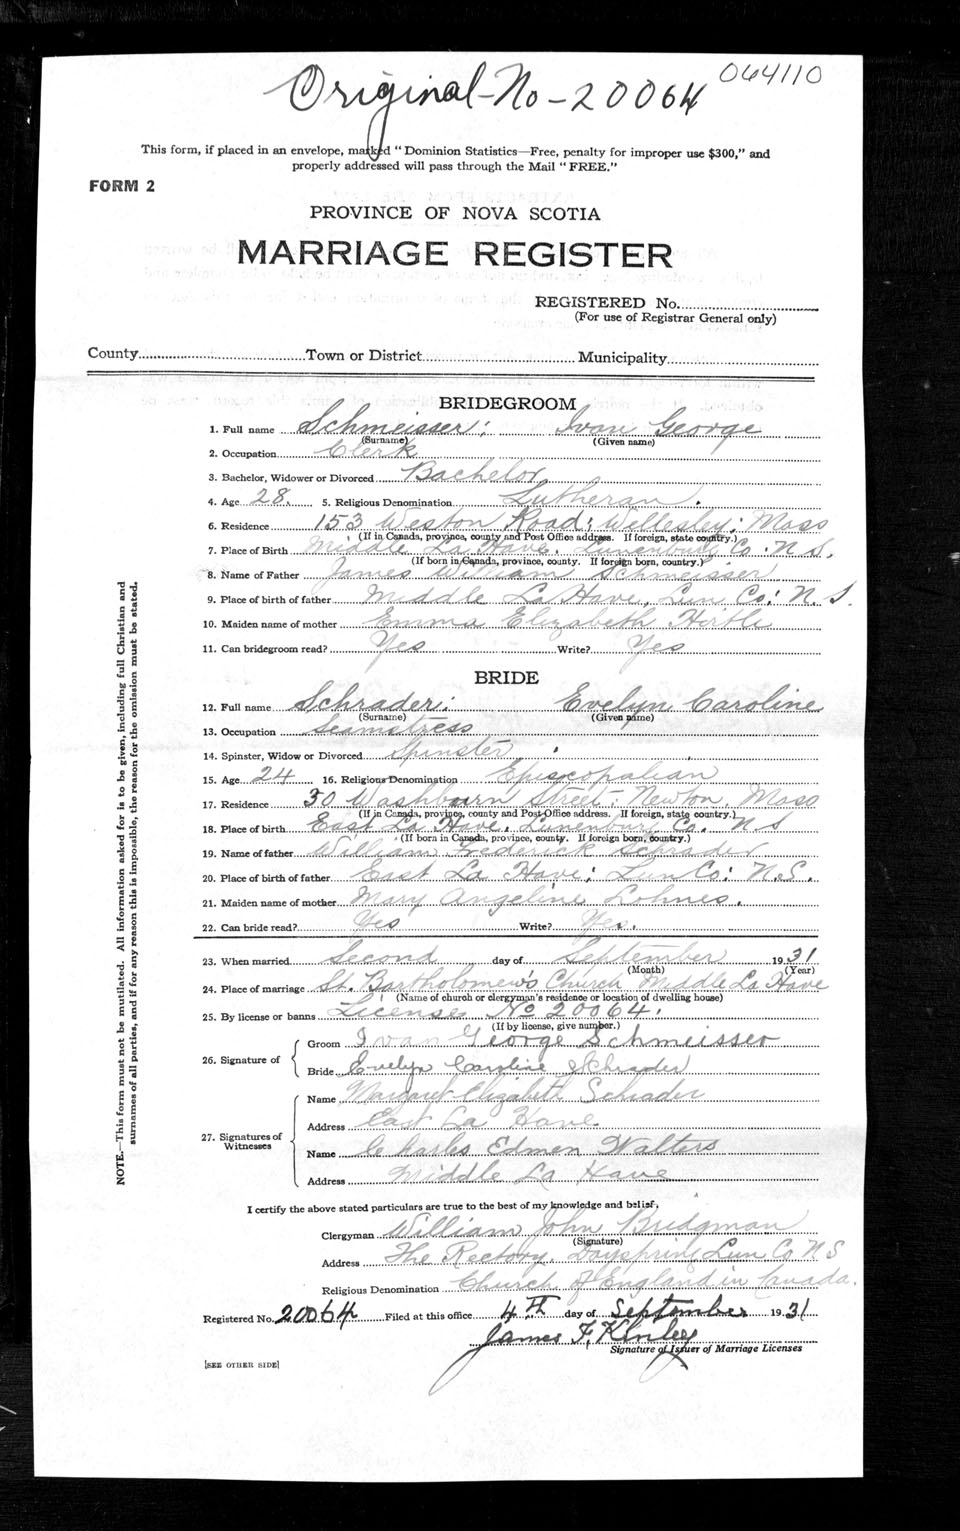 064110
Original-No-20064
This form, if placed in an envelope, marked "Dominion Statistics—Free, penalty for improper use $300," and
properly addressed will pass through the Mail "FREE."
FORM 2
PROVINCE OF NOVA SCOTIA
MARRIAGE REGISTER
REGISTERED No.
(For use of Registrar General only)
County Town or District Municipality
BRIDEGROOM
1. Full name Schmeisser; Ivan George
(Surname) (Given name)
2. Occupation Clerk
3. Bachelor, Widower or Divorced Bachelor
4. Age 28. 5. Religious Denomination Lutheran.
6. Residence 153 Weston Road; Wellesley; Mass
(If in Canada, province, county and Post Office address. If foreign, state country.)
7. Place of Birth Middle La Have. Lunenburg Co. N.S.
(If born in Canada, province, county. If foreign born, country.)
8. Name of Father James William Schmeisser
9. Place of birth of father Middle La Have, Lun Co: N.S.
10. Maiden name of mother Emma Elizabeth Hirtle
11. Can bridegroom read? Yes Write? Yes
BRIDE
12. Full name Schrader: Evelyn Caroline
(Surname) (Given name)
13. Occupation Seamstress
14. Spinster, Widow or Divorced Spinster
15. Age 24 16. Religious Denomination Episcopalian
17. Residence 30 Washburn Street; Newton, Mass
(If in Canada, province, county and Post Office address. If foreign, state country.)
18. Place of birth East La Have, Lunenburg Co. N S
(If born in Canada, province, county. If foreign born, country.)
19. Name of father William Frederick Schrader
20. Place of birth of father East La Have; Lun Co: N.S.
21. Maiden name of mother Mary Angeline Lohnes.
22. Can bride read? Yes Write? Yes.
23. When married Second day of September 1931
(Month) (Year)
24. Place of marriage St. Bartholomew's Church Middle La Have
(Name of church or clergyman's residence or location of dwelling house)
25. By license or banns License No 20064.
(If by license, give number.)
26. Signature of
Groom Ivan George Schmeisser
Bride Evelyn Caroline Schrader
27. Signatures of Witnesses
Name Margaret Elizabeth Schrader
Address East La Have.
Name Charles Edmen Walters
Address Middle La Have
I certify the above stated particulars are true to the best of my knowledge and belief,
Clergyman William John Bridgman
(Signature)
Address The Rectory, Dayspring Lun Co N S
Religious Denomination Church of England in Canada.
Registered No. 20064 Filed at this office 4th day of September 1931
James F. Kinley
Signature of Issuer of Marriage Licenses
[SEE OTHER SIDE]
NOTE.—This form must not be mutilated. All information asked for is to be given, including full Christian and
surnames of all parties, and if for any reason this is impossible, the reason for the omission must be stated.